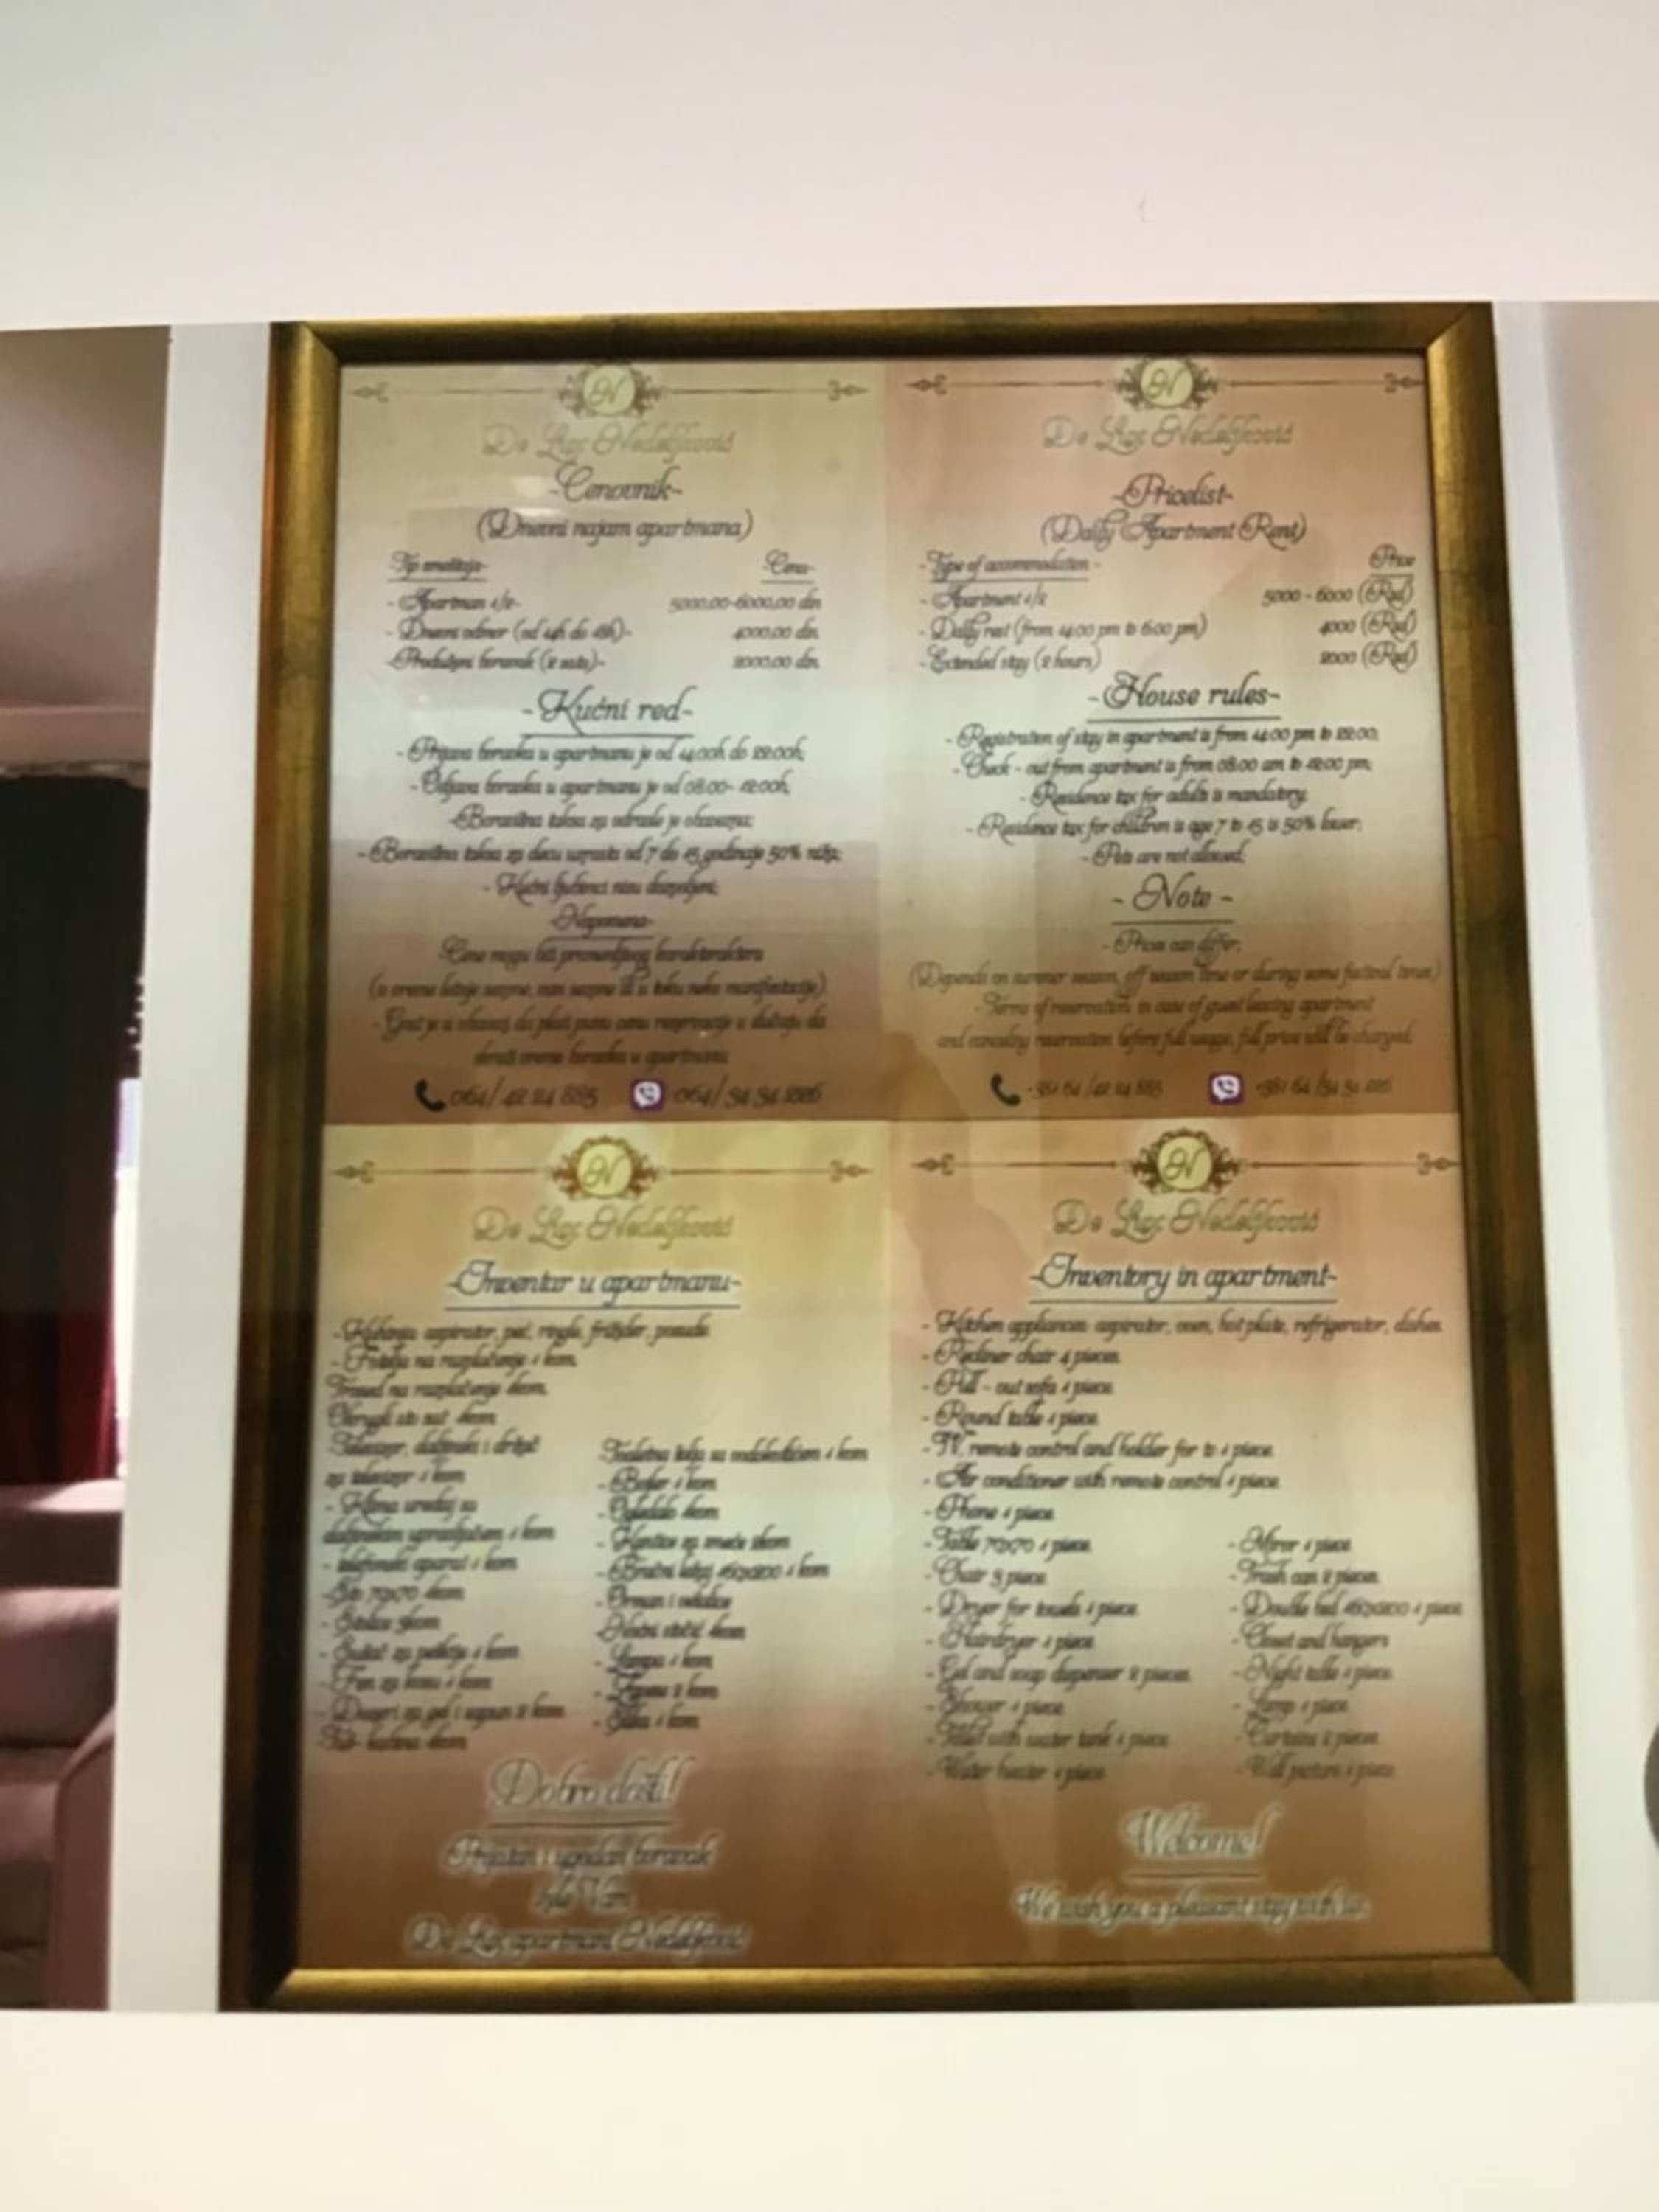 N
De Lux Nedeljković
-Cenovnik-
(Dnevni najam apartmana)
Tip smeštaja- -Cena-
- Apartman 1/2- 5000.00-6000,00 din
- Dnevni odmor (od 14h do 18h)- 4000.00 din
-Produženi boravak (2 sata)- 2000.00 din
-Kućni red-
- Prijava boravka u apartmanu je od 14:00h do 22:00h;
- Odjava boravka u apartmanu je od 08:00- 12:00h;
-Boravišna taksa za odrasle je obavezna;
- Boravišna taksa za decu uzrasta od 7 do 15 godina je 50% niža;
- Kućni ljubimci nisu dozvoljeni;
-Napomena-
Cene mogu biti promenljivog karaktera
(u vreme letnje sezone, van sezone ili u toku neke manifestacije)
- Gost je u obavezi da plati punu cenu rezervacije u slučaju da
skrati vreme boravka u apartmanu
064/ 42 24 885 064/ 34 34 226
N
De Lux Nedeljković
-Pricelist-
(Daily Apartment Rent)
- Type of accommodation - Price
- Apartment 1/2 5000 - 6000 (Rsd)
- Daily rest (from 14:00 pm to 6:00 pm) 4000 (Rsd)
- Extended stay (2 hours) 2000 (Rsd)
-House rules-
- Registration of stay in apartment is from 14:00 pm to 22:00;
- Check - out from apartment is from 08:00 am to 12:00 pm;
- Residence tax for adults is mandatory;
- Residence tax for children is age 7 to 15 is 50% lower;
- Pets are not allowed;
- Note -
- Prices can differ;
(Depends on summer season, off season time or during some festival times)
- Terms of reservation: in case of guest leaving apartment
and canceling reservation before full usage, full price will be charged.
N
De Lux Nedeljković
-Inventar u apartmanu-
-Kuhinja: aspirator, peć, ringla, frižider, posuđe
- Fotelja na razvlačenje 1 kom,
Trosed na razvlačenje 1kom,
Okrugli sto 1kom
Televizor, daljinski i držač
za televizor 1 kom
- Klima uređaj sa
daljinskim upravljačem 1 kom
- telefonski aparat 1 kom
-Sto 70x70 1kom
- Stolice 3kom
- Sušač za peškire 1 kom
- Fen za kosu 1 kom
- Dozeri za gel i sapun 2 kom
Tuš- kabina 1kom
- Toaletna šolja sa vodokotlićem 1 kom
- Bojler 1 kom
- Ogledalo 1kom
- Kantice za smeće 2kom
- Bračni ležaj 160x200 1 kom
- Orman i vešalice
-Noćni stočić 1kom
- Lampa 1 kom
- Zavese 2 kom
- Slika 1 kom
Dobro došli!
Prijatan i ugodan boravak
želi Vam
De Lux apartmani Nedeljković
N
De Lux Nedeljković
-Inventory in apartment-
- Kitchen appliances: aspirator, oven, hot plate, refrigerator, dishes
- Recliner chair 1 pieces.
- Pull - out sofa 1 piece
- Round table 1 piece
- TV, remote control and holder for tv 1 piece
- Air conditioner with remote control 1 piece
- Phone 1 piece
- Table 70x70 1 piece
- Chair 3 piece
- Dryer for towels 1 piece
- Hairdryer 1 piece
- Gel and soap dispenser 2 pieces
- Shower 1 piece
- Toilet with water tank 1 piece
- Water heater 1 piece
- Mirror 1 piece
- Trash can 2 pieces
- Double bed 160x200 1 piece
- Closet and hangers
- Night table 1 piece
- Lamp 1 piece
- Curtains 2 pieces
- Wall picture 1 piece
Welcome!
We wish you a pleasant stay with us